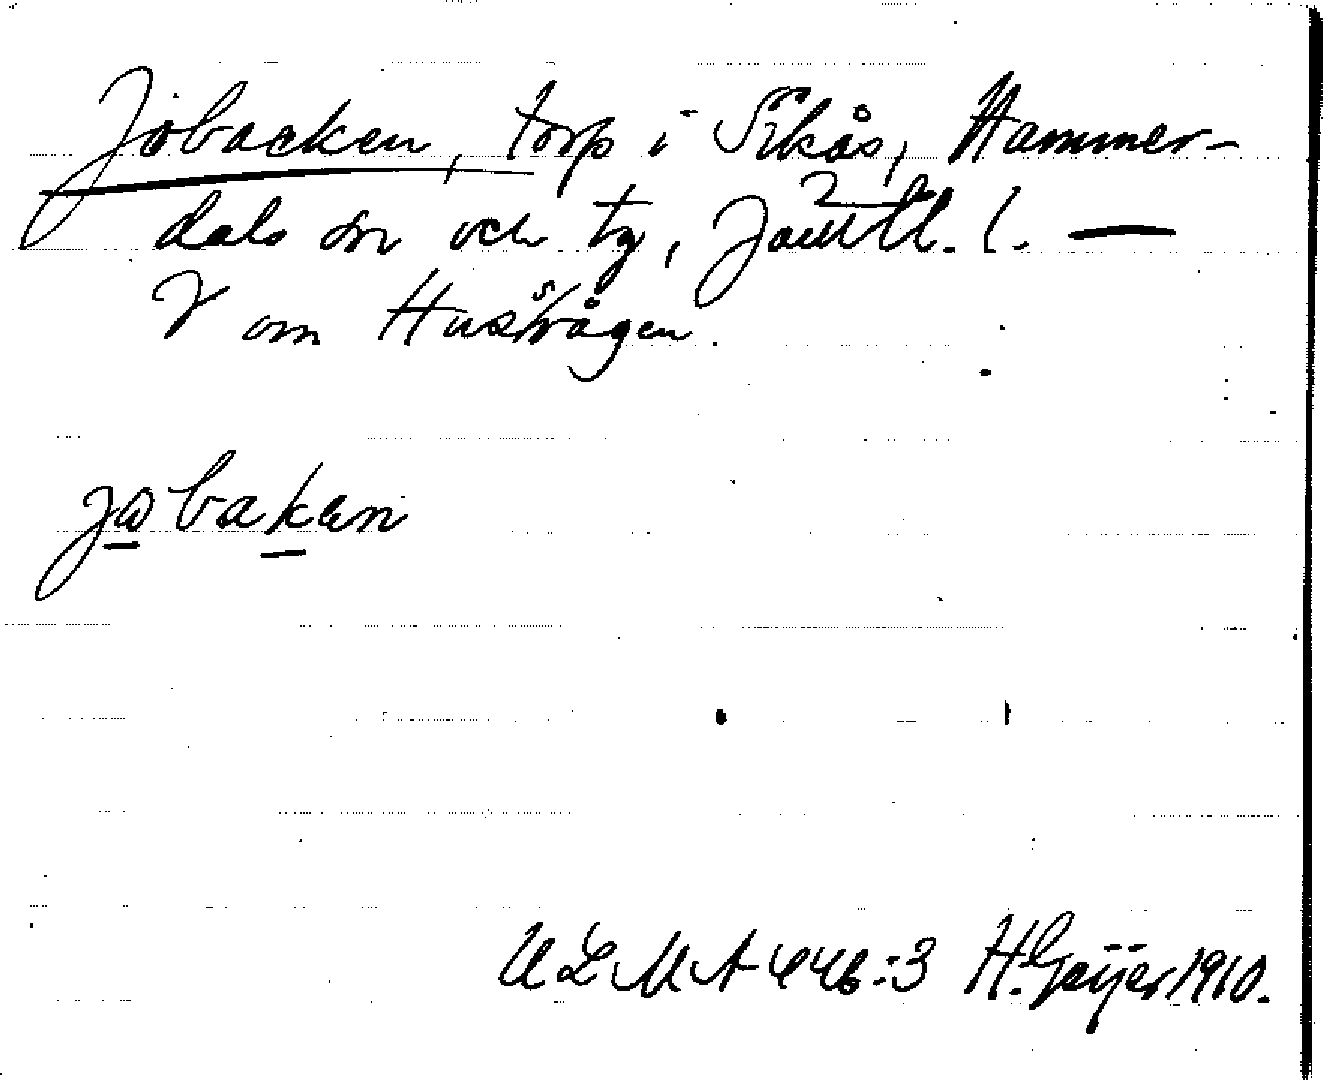 Jöbacken, torp i Sikås, Hammer-
dals sn och tg, Jämtl. l. —
V om Husvågen.
jøbakən
ULMA 446:3 H. Geijer 1910.